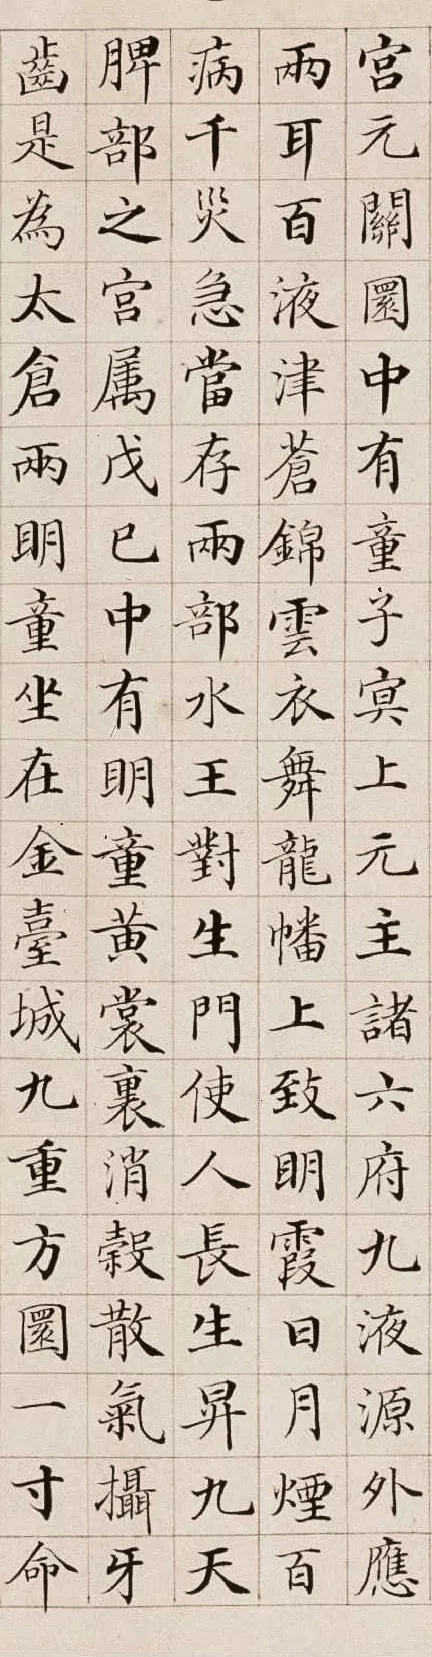 宮元關圜中有童子冥上元主諸六府九液源外應
兩耳百液津蒼錦雲衣舞龍幡上致明霞日月煙百
病千災急當存兩部水王對生門使人長生昇九天
脾部之宮属戊巳中有明童黃裳裏消榖散氣攝牙
齒是為太倉兩明童坐在金臺城九重方圓一寸命